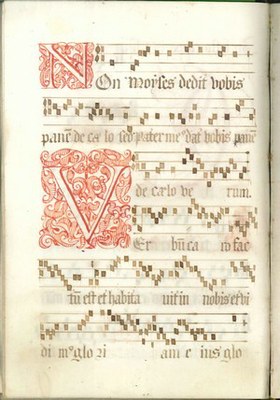 NOn Moÿses dedit vobis
panē de cælo sed pater meꝰ dat vobis panē
de cælo ve rum.
VEr bū ca ro fac
tū est et habita uit in nobis et vi
di mꝰ glo ri am e ius glo